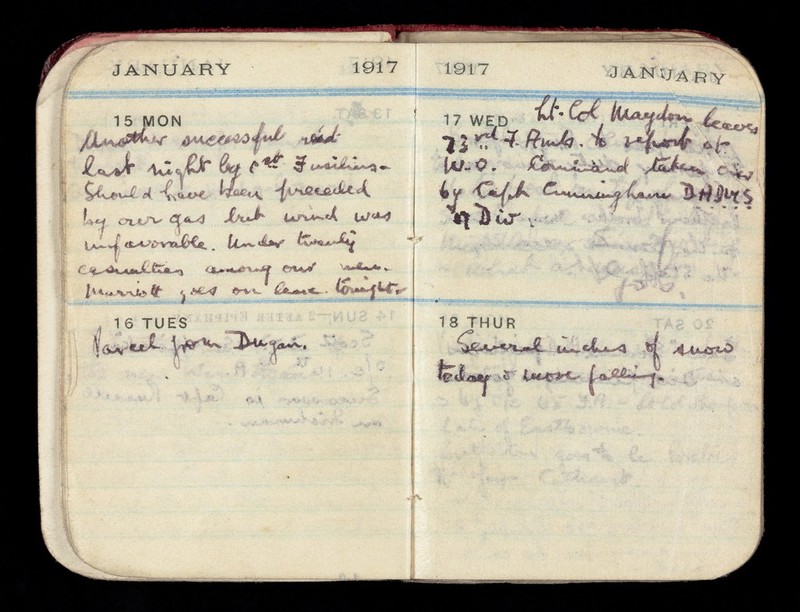 JANUARY 1917
15 MON
Another successful raid
last night by Fusiliers.
Should have been preceded
by our gas but wind was
unfavorable. Under twenty
casualties among our men.
Marriott goes on leave tonight.
16 TUES
Parcel from Dugan.
1917 JANUARY
17 WED Lt. Col Maydon leaves
73rd F. Amb. to report at
W.O. Command taken over
by Capt Cunningham D.A.D.M.S.
Div.
18 THUR
Several inches of snow
today & more falling.